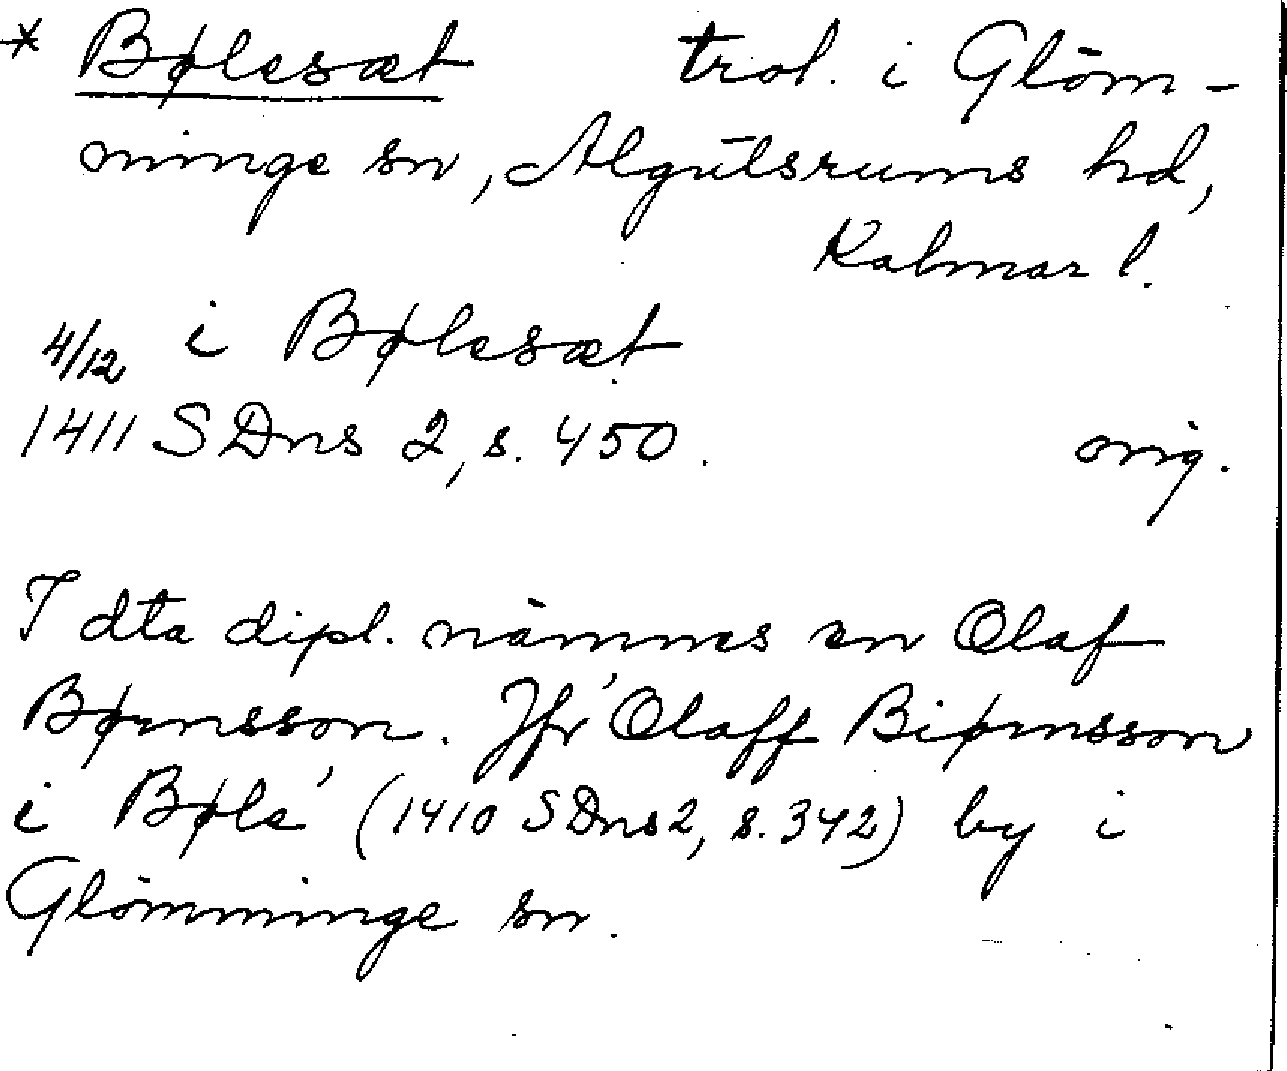 * Bølesæt trol. i Glöm-
minge sn, Algutsrums hd,
Kalmar l.
4/12 i Bølesæt
1411 SDns 2, s. 450. orig.
I dta dipl. nämnes en Olaf
Børnsson. Jfr 'Olaff Biørnsson
i Bøle' (1410 SDns 2, s. 342) by i
Glömminge sn.